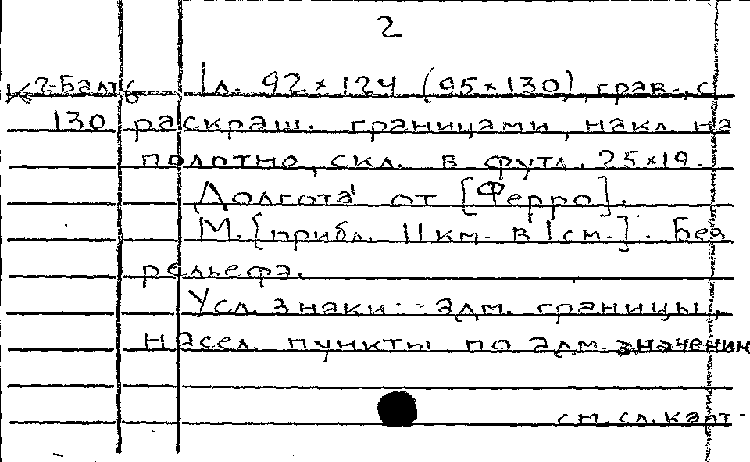 2
К 2-Балт 6 1 л. 92×124 (95×130), грав. с
130 раскраш. границами, накл. на
полотно, скл. в футл. 25×19.
Долгота от [Ферро].
М. [прибл. 11 км. в 1 см.]. Без
рельефа.
Усл. знаки: адм. границы,
насел. пункты по адм. значению
см. сл. карт.